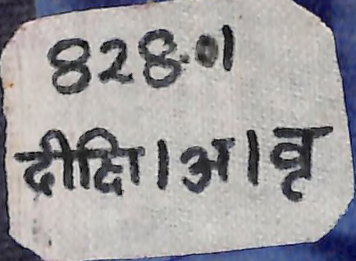 828.01
दीक्षि।अ।वृ